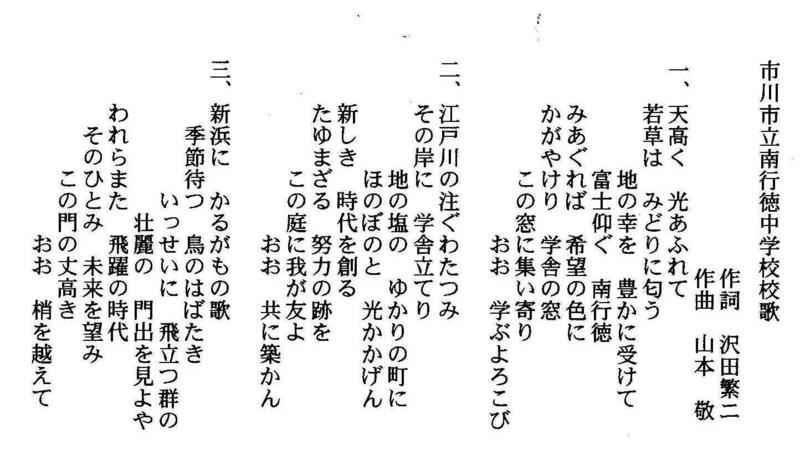 市川市立南行徳中学校校歌
作詞 沢田繁二
作曲 山本 敬
一、天高く 光あふれて
若草は みどりに匂う
地の幸を 豊かに受けて
富士仰ぐ 南行徳
みあぐれば 希望の色に
かがやけり 学舎の窓
この窓に集い寄り
おお 学ぶよろこび
二、江戸川の注ぐわたつみ
その岸に 学舎立てり
地の塩の ゆかりの町に
ほのぼのと 光かかげん
新しき 時代を創る
たゆまざる 努力の跡を
この庭に我が友よ
おお 共に築かん
三、新浜に かるがもの歌
季節待つ 鳥のはばたき
いっせいに 飛立つ群の
壮麗の 門出を見よや
われらまた 飛躍の時代
そのひとみ 未来を望み
この門の丈高き
おお 梢を越えて